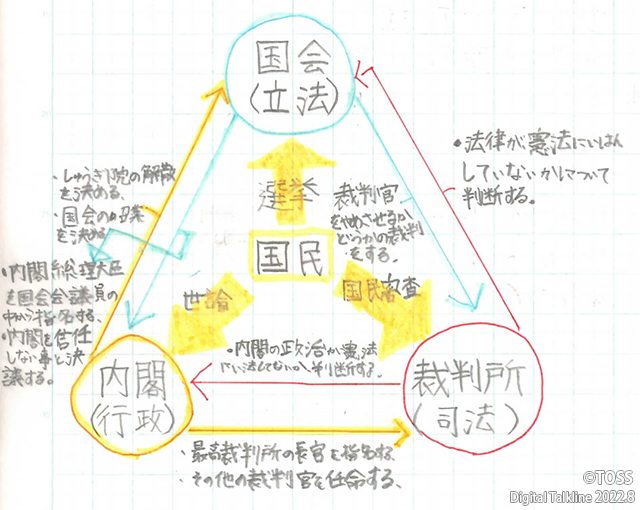 国会
(立法)
・しゅうぎ院の解散
を決める。
・国会の召集
を決める
・法律が憲法にいはん
していないかについて
判断する。
選挙
裁判官
をやめさせるか
どうかの裁判
をする。
国民
世論
国民審査
・内閣総理大臣
を国会会議員の
中から指名する、
・内閣を信任
しない事と決
議する。
・内閣の政治が憲法
にい法してないか判断する。
内閣
(行政)
裁判所
(司法)
・最高裁判所の長官を指名する
・その他の裁判官を任命する、
©TOSS
Digital Talkline 2022.8